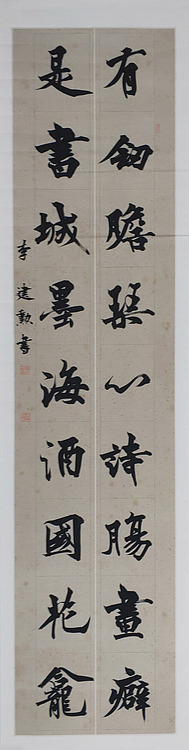 有劒膽琹心詩腸畫癖
是書城墨海酒國花龕
李建勲書